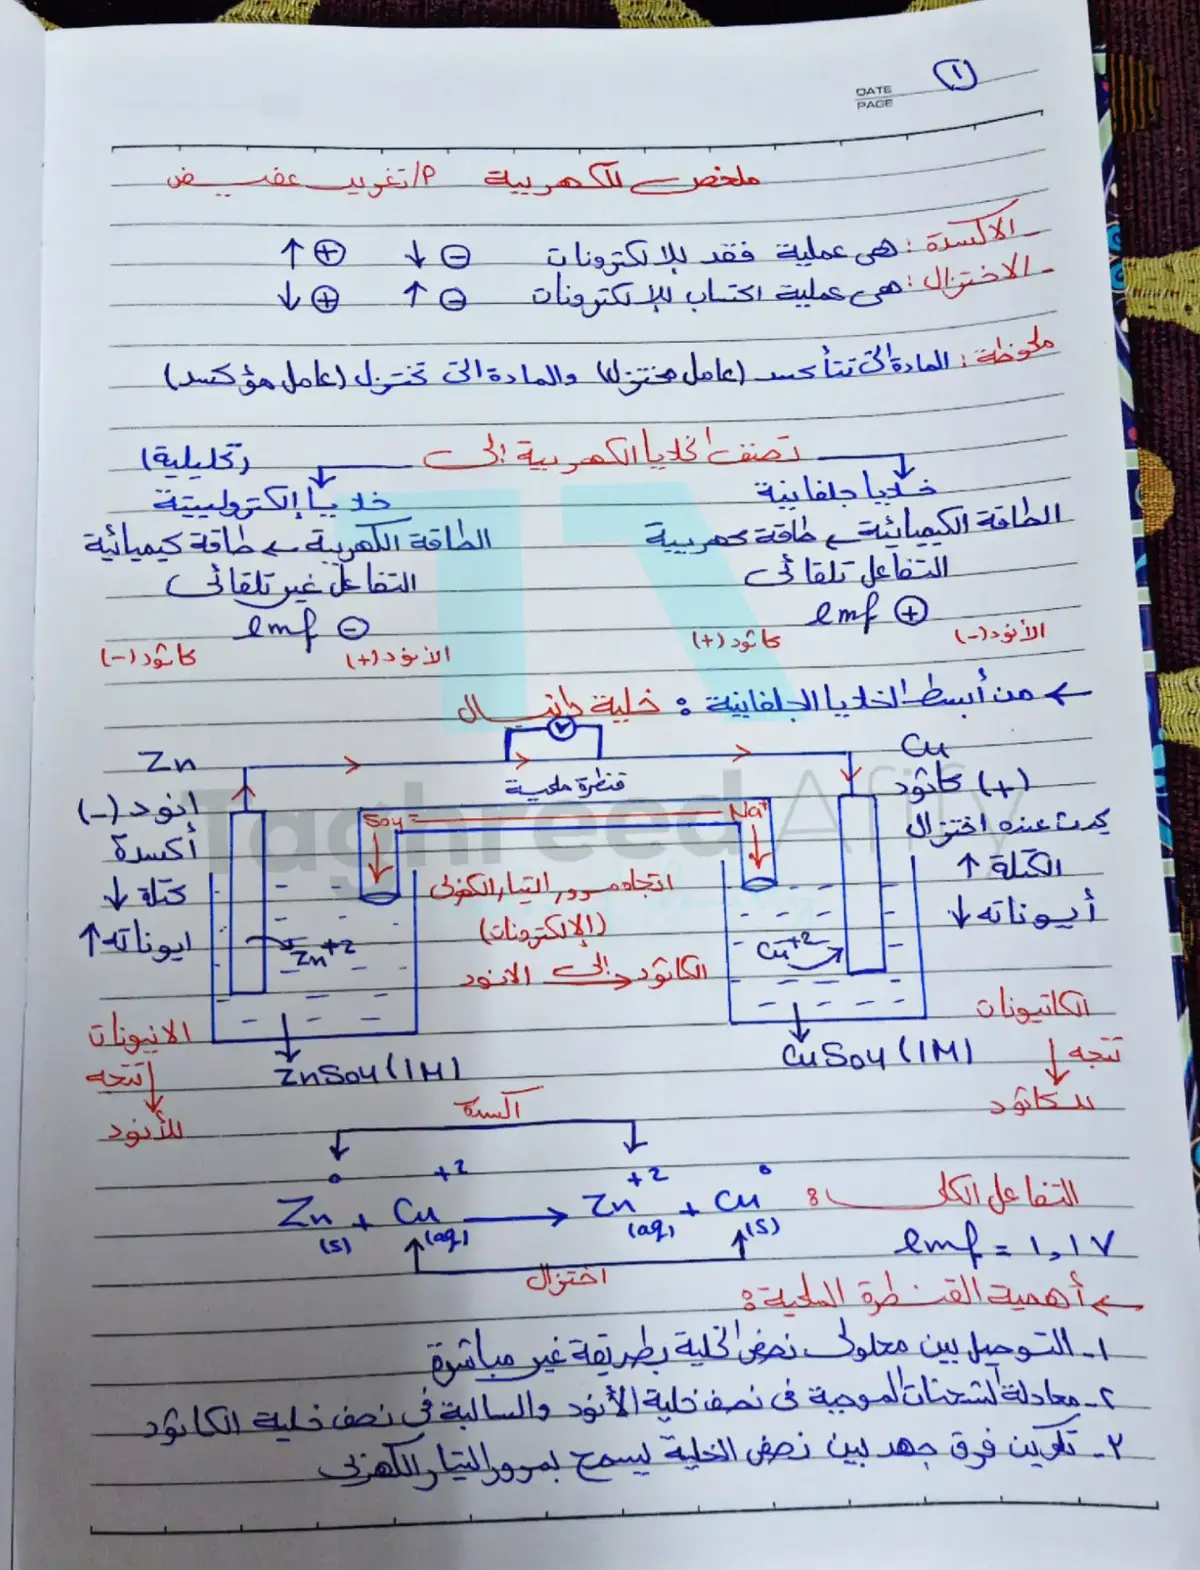 DATE
PAGE
١
ملخص الكهربية م/تغريد عفيفي
الأكسدة : هى عملية فقد للإلكترونات ⊖ ↓ ⊕ ↑
الاختزال : هى عملية اكتساب للإلكترونات ⊖ ↑ ⊕ ↓
ملحوظة : المادة التى تتأكسد (عامل مختزل) والمادة التى تختزل (عامل مؤكسد)
تصنف الخلايا الكهربية إلى
خلايا جلفانية
الطاقة الكيميائية ← طاقة كهربية
التفاعل تلقائى
emf ⊕
الأنود (-) كاثود (+)
(تحليلية)
خلايا إلكتروليتية
الطاقة الكهربية ← طاقة كيميائية
التفاعل غير تلقائى
emf ⊖
الأنود (+) كاثود (-)
← من أبسط الخلايا الجلفانية : خلية دانيال
V
Zn
انود (-)
أكسدة
كتلة ↓
ايوناته ↑
Cu
(+) كاثود
يحدث عنده اختزال
الكتلة ↑
أيوناته ↓
قنطرة ملحية
So4= Na+
اتجاه مرور التيار الكهربى
(الإلكترونات)
الكاثود إلى الانود
Zn+2
Cu+2
الكاتيونات
تتجه
للكاثود
الانيونات
تتجه
للأنود
ZnSo4 (1M)
CuSo4 (1M)
أكسدة
التفاعل الكلى :
Zn⁰(s) + Cu+2(aq) → Zn+2(aq) + Cu⁰(s)
اختزال
emf = ١,١٧
← أهمية القنطرة الملحية :
١- التوصيل بين محلولى نصفى الخلية بطريقة غير مباشرة
٢- معادلة الشحنات الموجبة فى نصف خلية الأنود والسالبة فى نصف خلية الكاثود
٣- تكوين فرق جهد بين نصفى الخلية يسمح بمرور التيار الكهربى
Taghreed Afify